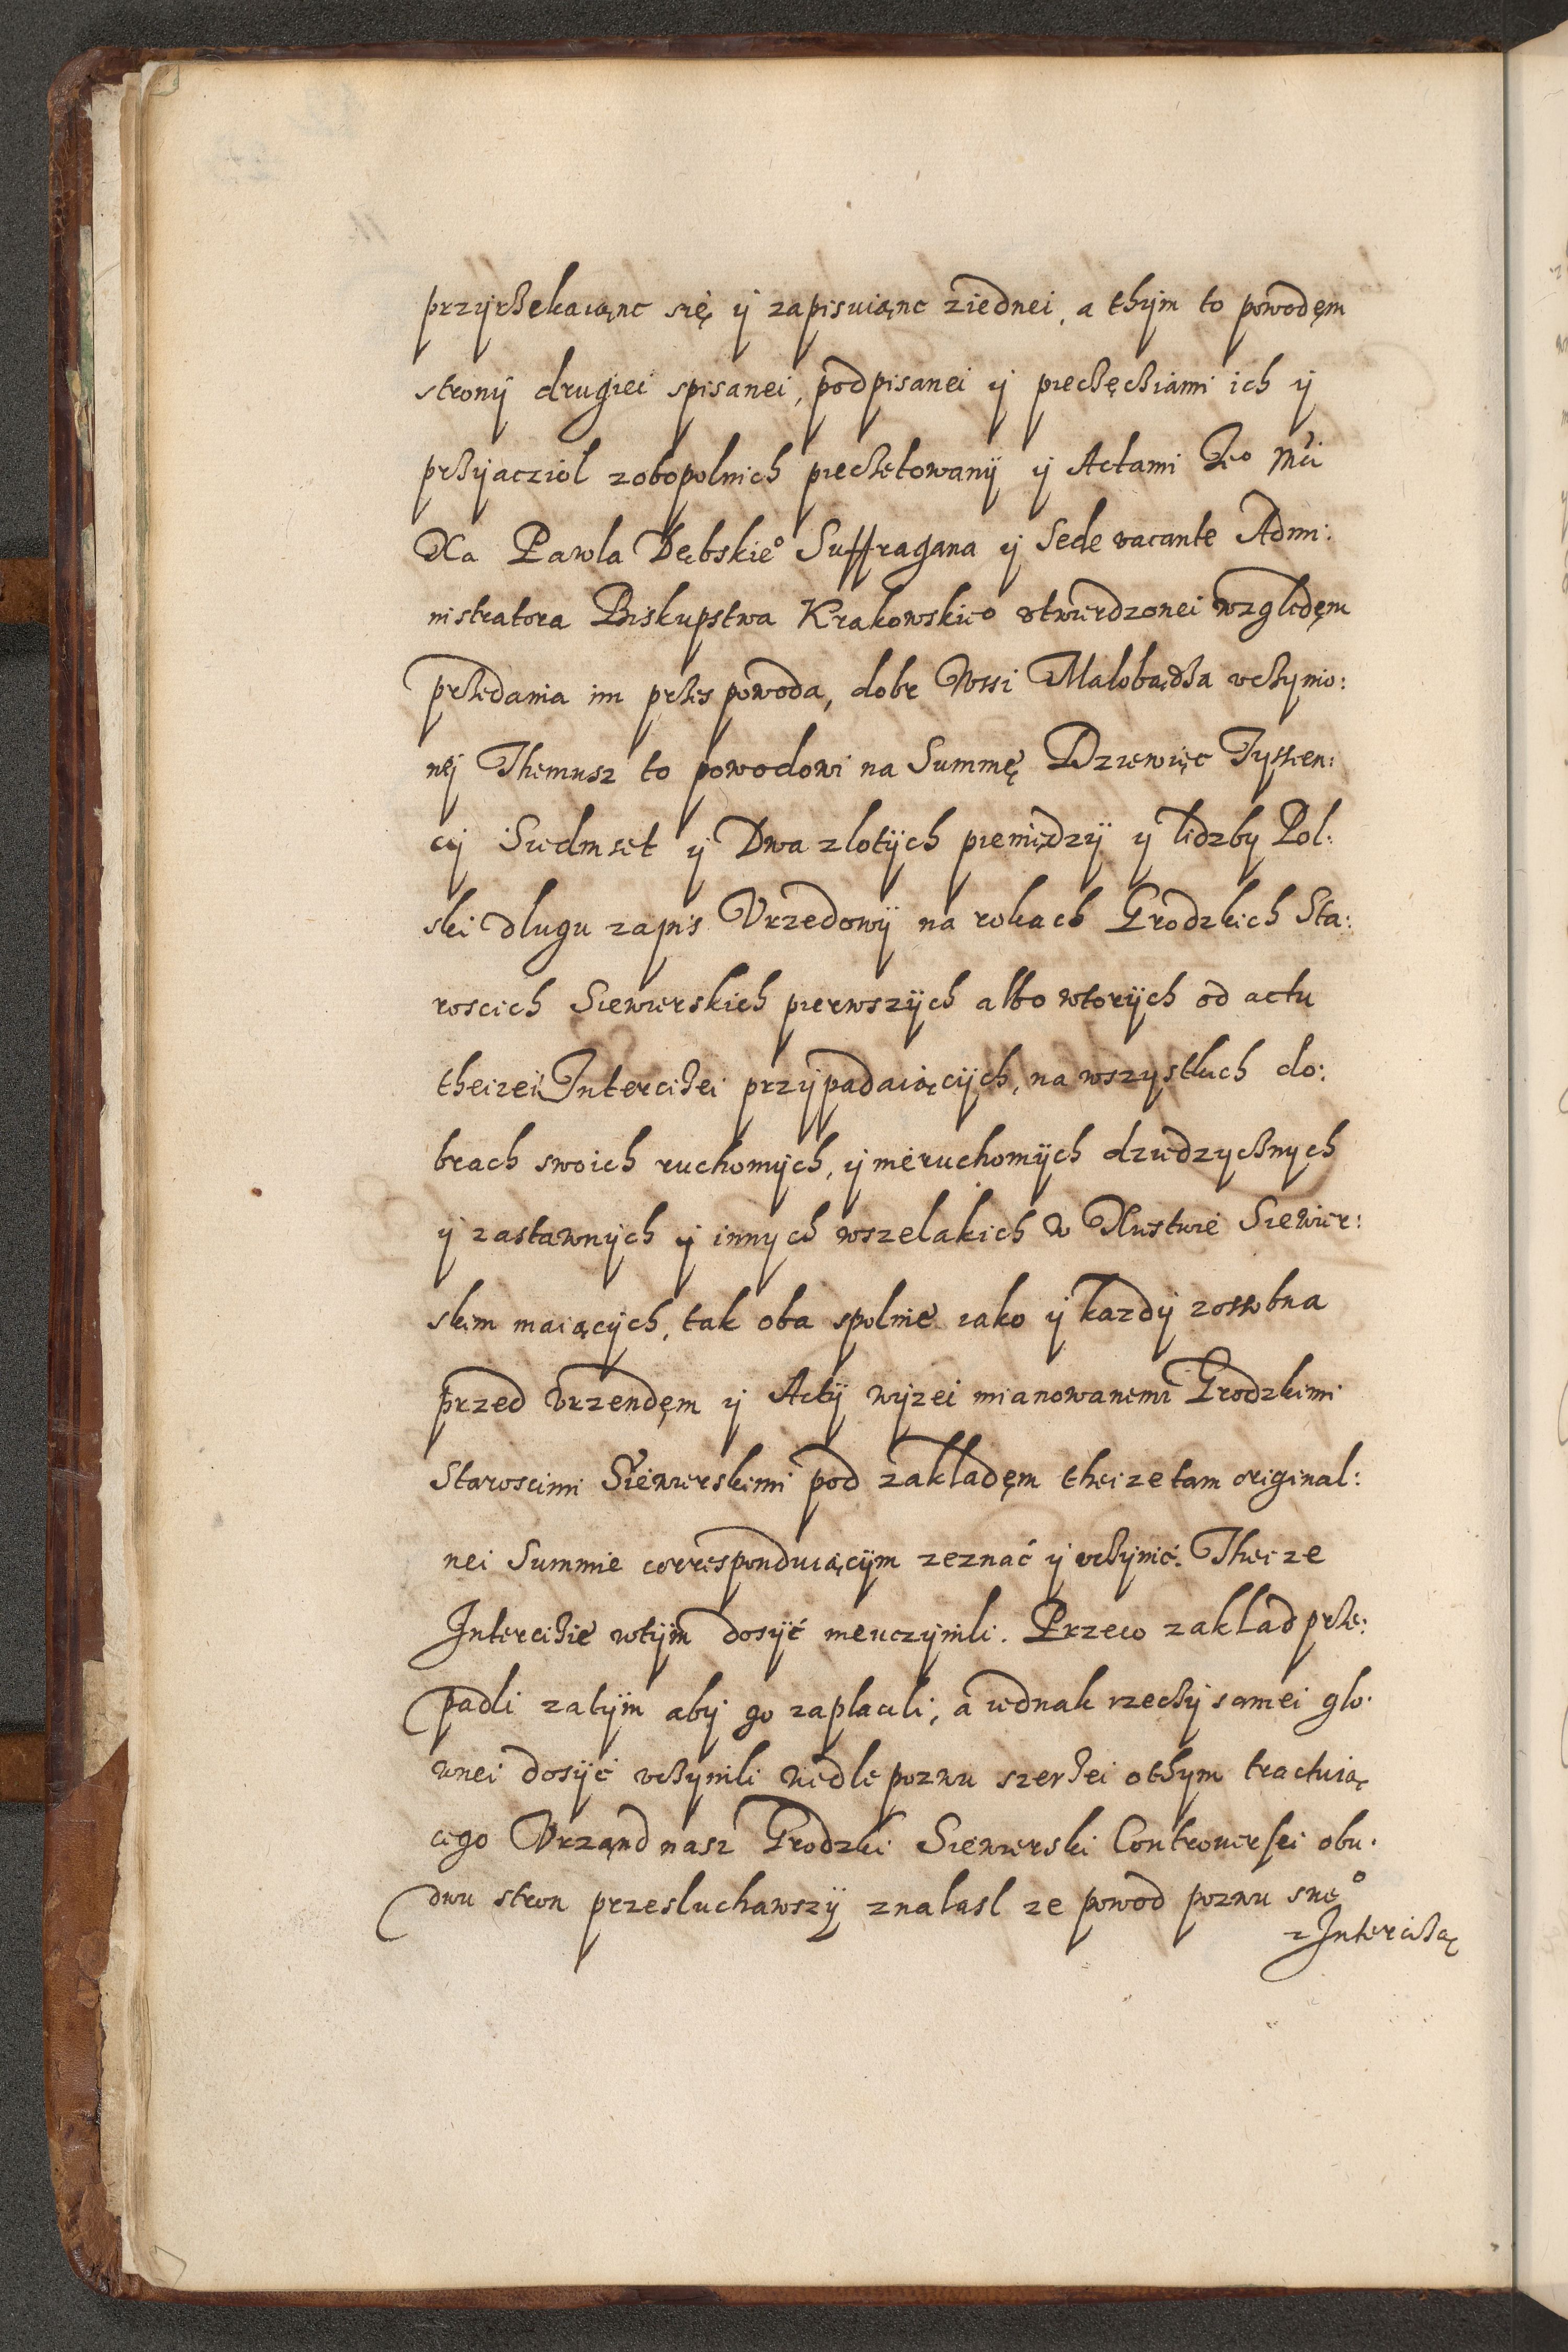 przyrzekaiąnc się ÿ zapisuiąnc ziednei, a thÿm to powodęm
stronÿ drugiei spisanei, podpisanei ÿ pieczęcziami ich ÿ
przÿaczioł zobopolnich pieczętowanÿ ÿ Actami Je° Mci
Xa Pawla Dębskie° Suffragana ÿ Sede vacante Admi:
nistratora Biskupstwa Krakowskie° vtwierdzonei względęm
przedania im przes powoda, dobr Wssi Małobądza vczynio:
nej Themusz to powodowi na Summę Dziewięc Tyssien:
cÿ Siedmset ÿ Dwa złotÿch pieniędzÿ ÿ lidzby Pol:
ski dlugu zapis Vrzedowÿ na rokach Grodzkich Sta:
roscich Siewierskich pierwszÿch albo wtorÿch od actu
theizei Intercizei przÿpadaiącÿch, na wszystkich do:
brach swoich ruchomÿch, ÿ nieruchomÿch dziedzycznych
ÿ zastawnÿch ÿ innych wszelakich w Xiustwie Siewier:
skim maiącÿch, tak oba spolnie iako ÿ kazdÿ zossobna
przed Vrzendęm ÿ Actÿ wÿzei mianowanemi Grodzkimi
Staroscimi Siewierskimi pod zakladęm theize tam original:
nei Summie correspondviącÿm zeznać ÿ vczynić. Theize
Intercizie wtÿm dosÿć nieuczynili. Przeco zaklad prze:
padli zatÿm abÿ go zaplacili, a iednak rzeczÿ samei glo:
wnei dosÿć vczynili wedle pozwu szerzei othym tractuią
cego Vrząnd nasz Grodzki Siewierski Controuersei obu:
dwu stron przesluchawszÿ znalasl ze powod pozwu sue°
z Intercizą